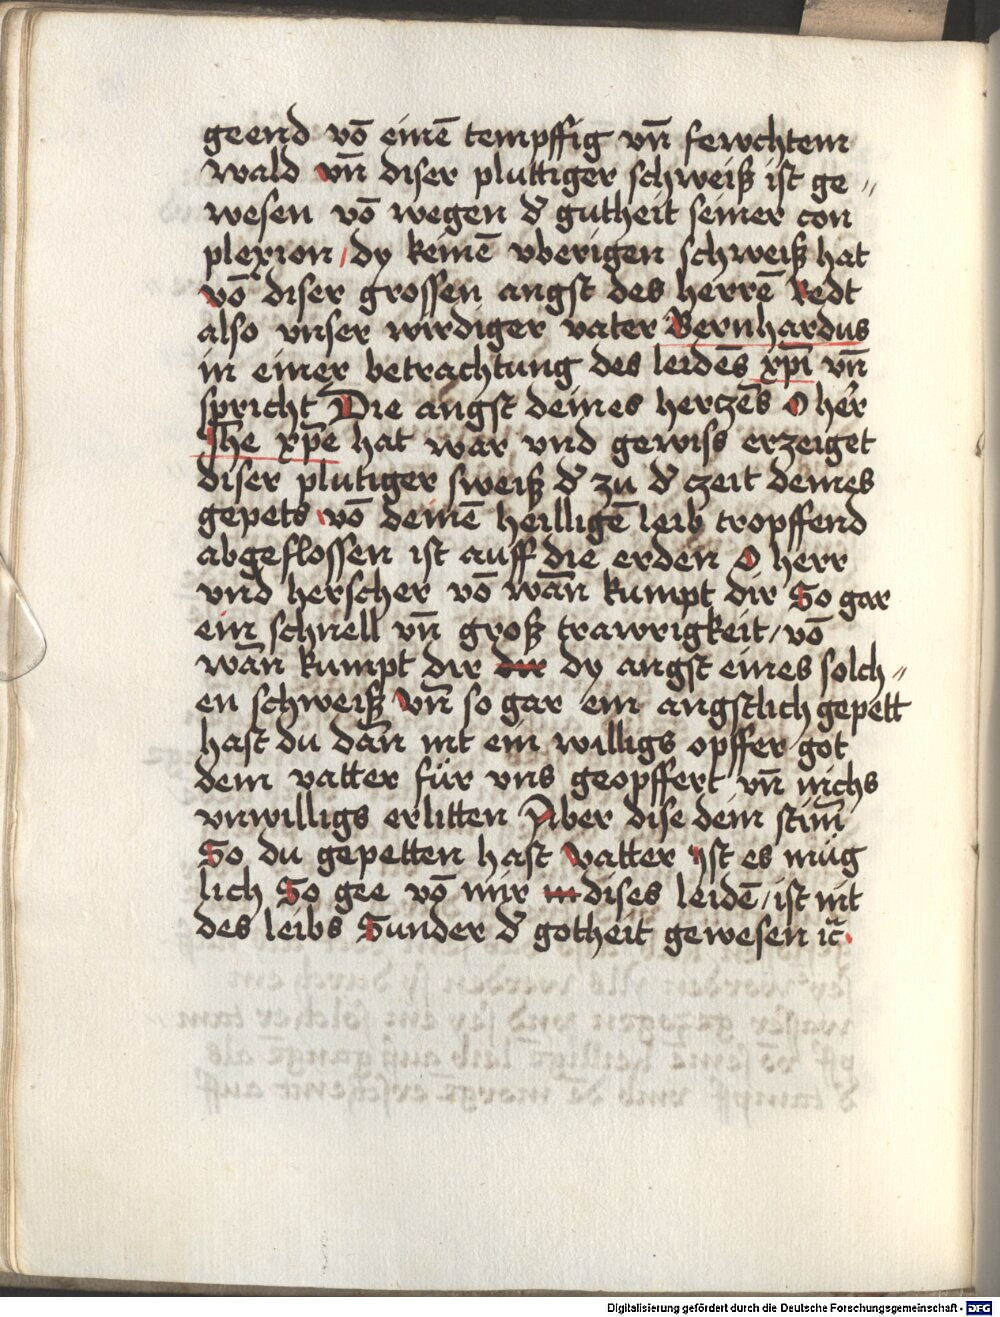 geend vō einē tempffig vn̄ fewchtem
wald vn̄ diser pluttiger schweiß ist ge〃
wesen vō wegen d̕ gutheit seiner con
plexion / dy keinē vberigen schweiß hat
vō diser grossen angst des herrē Redt
also vnser wirdiger vater Bernhardus
in einer betrachtung des leidēs xp̄i vn̄
spricht Die angst deines herczēs O her̕
Jh̄e xp̄e hat war vnd gewiss erzeiget
diser plutiger sweiß d̕ zu d̕ czeit deines
gepets vō deinē heilligē leib tropffend
abgeflossen ist auff die erden O herr
vnd herscher vō wān kumpt dir So gar
ein schnell vn̄ groß trawrigkeit / vō
wān kumpt dir dy angst eines solch〃
en schweiß Vn̄ so gar ein angstlich gepett
hast du dān nit ein willigs opffer got
dem vatter für vns geopffert vn̄ nichs
vnwilligs erlitten Aber dise dein stim̄
So du gepetten hast Vatter Jst es müg
lich So gee vō mir dises leidē / ist nit
des leibs Sunder d̕ gotheit gewesen ꝛc̄.
Digitalisierung gefördert durch die Deutsche Forschungsgemeinschaft - DFG